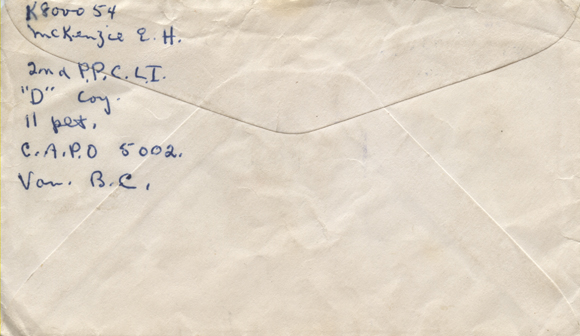 K800054
McKenzie E. H.
2nd P.P.C.L.I.
"D" Coy.
11 plt.
C.A.P.O 5002.
Van. B.C.